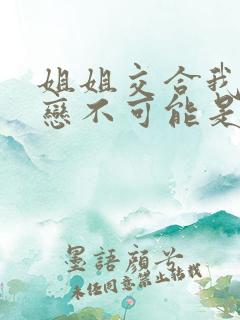 姐姐交合我
戀不可能是
墨語顏芊
未經同意禁止轉載